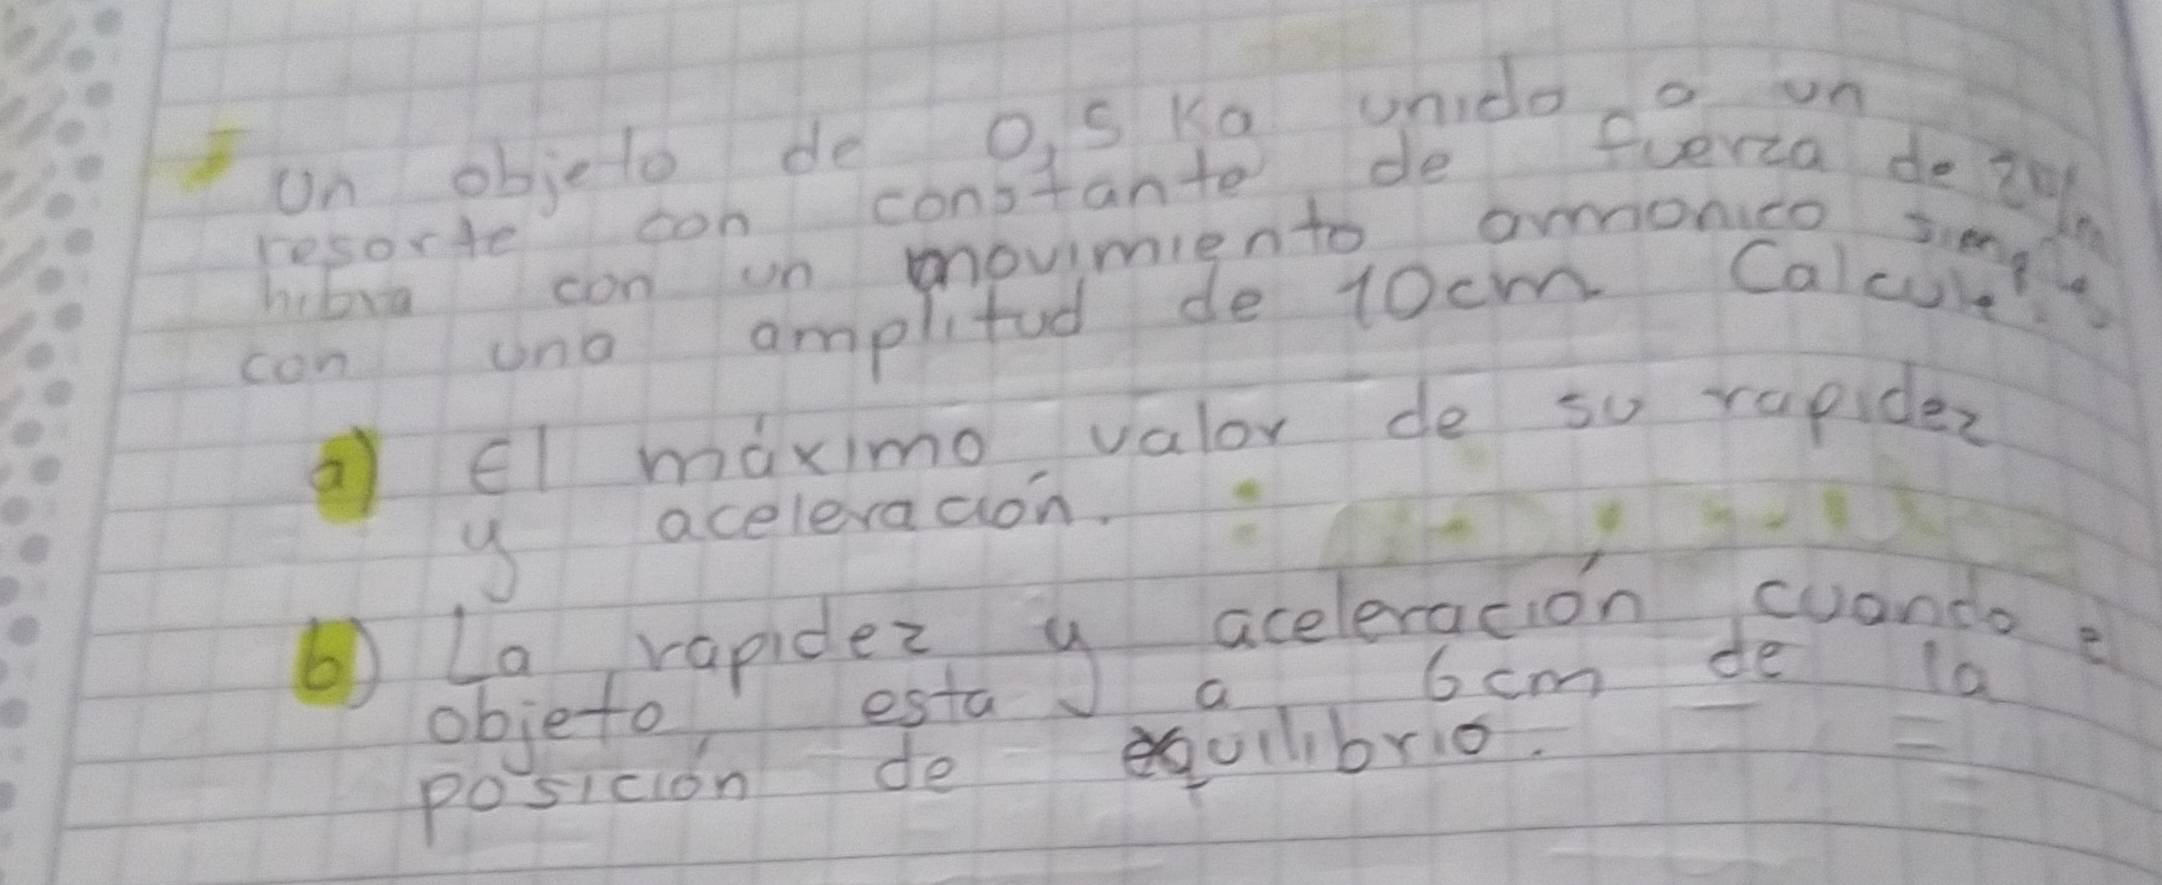 Un objeto de 0,5 Ka unido a un
resorte con constante de fuerza de
hibra con un movimiento armonico simple
con una amplitud de 10cm Calcule:
a) El máximo valor de su rapidez
y aceleración.
b) La rapidez y aceleración cuando e
objeto esta a 6cm de la
posición de equilibrio.